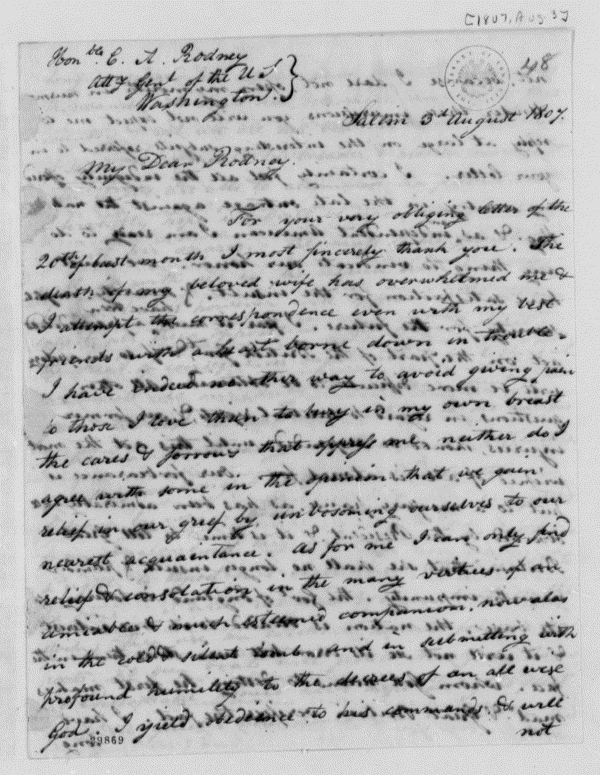 [1807, Aug 3]
48
Honble C. A. Rodney
Atty Genl of the U S
Washington.
Salem 3rd August 1807.
My Dear Rodney.
For your very obliging letter of the
20th of last month I most sincerely thank you. The
death of my beloved wife has overwhelmed me &
I attempt the correspondence even with my best
friends with a heart borne down in trouble.
I have indeed no other way to avoid giving pain
to those I love than to bury in my own breast
the cares & sorrows that oppress me neither do I
agree with some in the opinion that we gain
relief in our grief by unbosoming ourselves to our
nearest acquaintance. As for me I can only find
relief & consolation in the many virtues of one
amiable & much esteemed companion, now alas
in the cold & silent tomb and in submitting with
profound humility to the decrees of an all wise
God. I yield obedience to his commands & will
not
29869